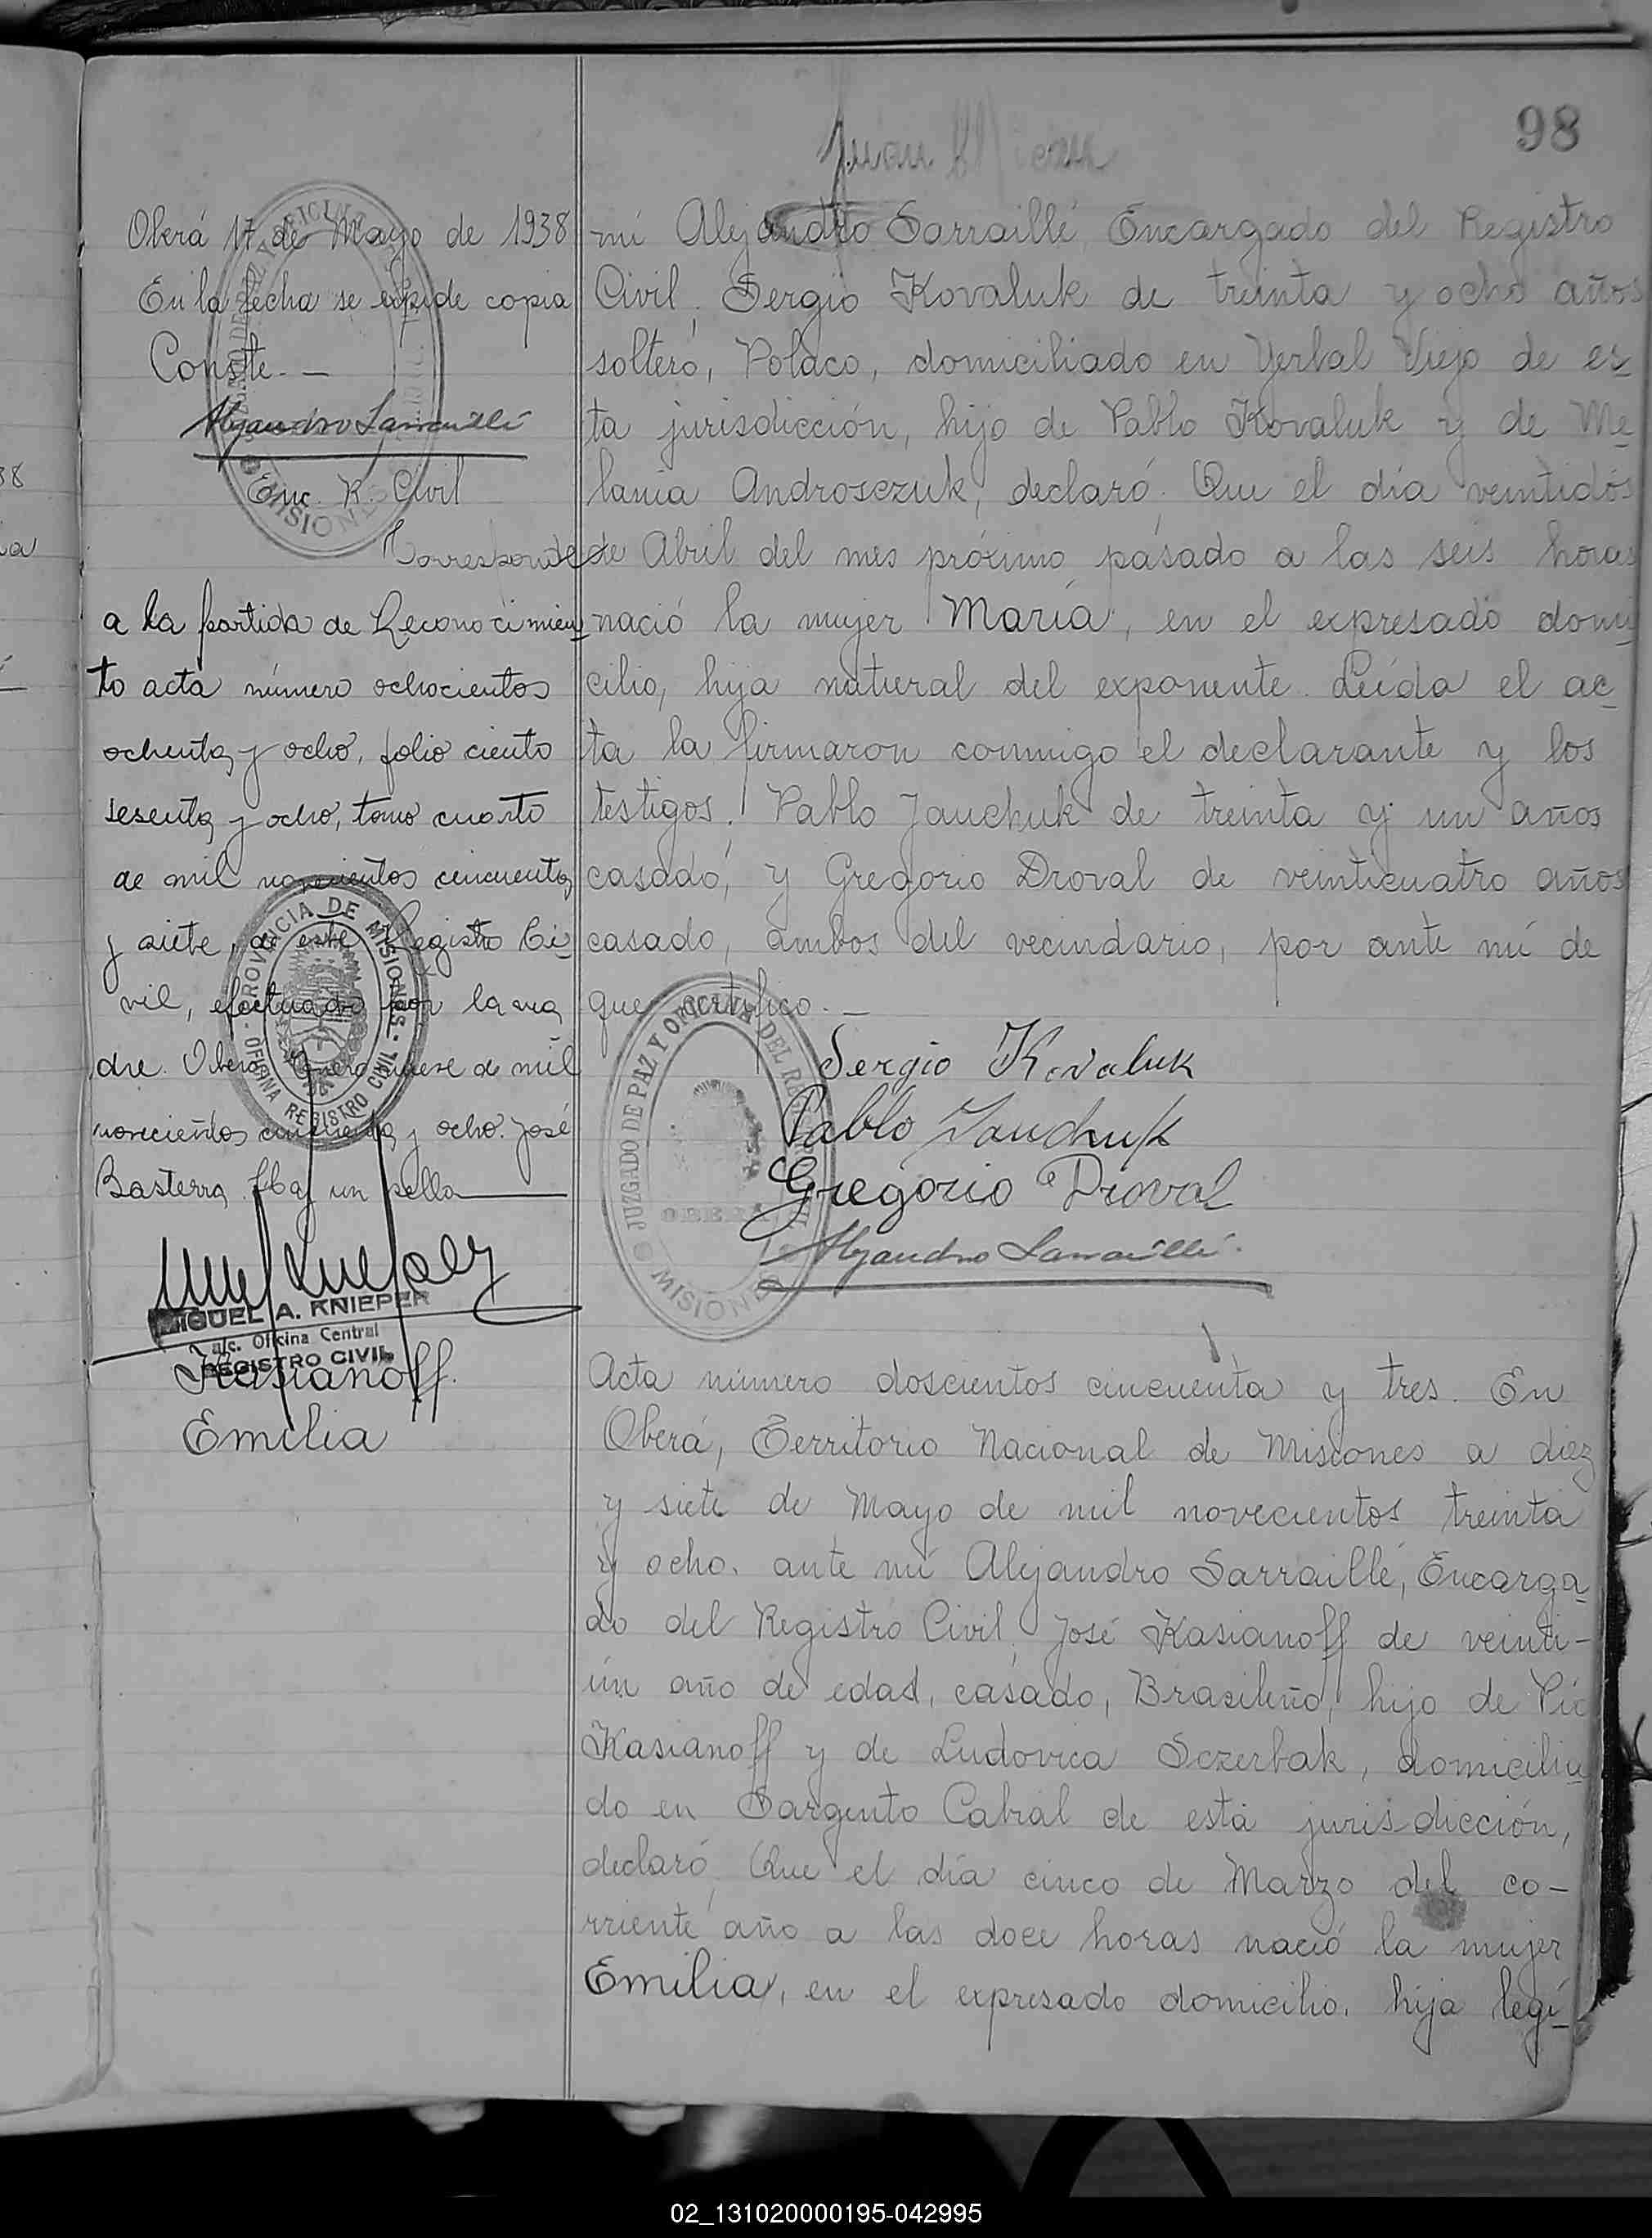 98
Juan
Oberá 17 de Mayo de 1938
En la fecha se expide copia
Conste. —
Alejandro Sarraillé
Enc. R. Civil
Corresponde
a la partida de Reconocimien
to acta número ochocientos
ochenta y ocho, folio ciento
sesenta y ocho, tomo cuarto
de mil novecientos cincuenta
y siete, de este Registro Ci
vil, efectuado por la ma
dre. Oberá, Enero nueve de mil
novecientos cincuenta y ocho. José
Basterra. Hay un sello
PROVINCIA DE MISIONES
OFICINA REGISTRO CIVIL
MIGUEL A. KNIEPER
a/c. Oficina Central
REGISTRO CIVIL
Kasianoff.
Emilia
mi Alejandro Sarraillé Encargado del Registro
Civil, Sergio Kovaluk de treinta y ocho años
soltero, Polaco, domiciliado en Yerbal Viejo de es
ta jurisdicción, hijo de Pablo Kovaluk y de Me
lania Androsczuk, declaró: Que el día veintidós
de Abril del mes próximo pasado a las seis horas
nació la mujer María, en el expresado domi
cilio, hija natural del exponente. Leída el ac
ta la firmaron conmigo el declarante y los
testigos: Pablo Jauchuk de treinta y un años
casado, y Gregorio Droval de veinticuatro años
casado, ambos del vecindario, por ante mí de
que certifico. —
Sergio Kovaluk
Pablo Jauchuk
Gregorio Droval
Alejandro Sarraillé.
JUZGADO DE PAZ Y OFICINA DEL REGISTRO CIVIL
OBERA
MISIONES
Acta número doscientos cincuenta y tres. En
Oberá, Territorio Nacional de Misiones a diez
y siete de Mayo de mil novecientos treinta
y ocho. ante mí Alejandro Sarraillé, Encarga
do del Registro Civil, José Kasianoff de veinti-
ún año de edad, casado, Brasileño, hijo de Pío
Kasianoff y de Ludovica Sczerbak, domicilia
do en Sargento Cabral de esta jurisdicción,
declaró: Que el día cinco de Marzo del co-
rriente año a las doce horas nació la mujer
Emilia, en el expresado domicilio, hija legí
02_131020000195-042995